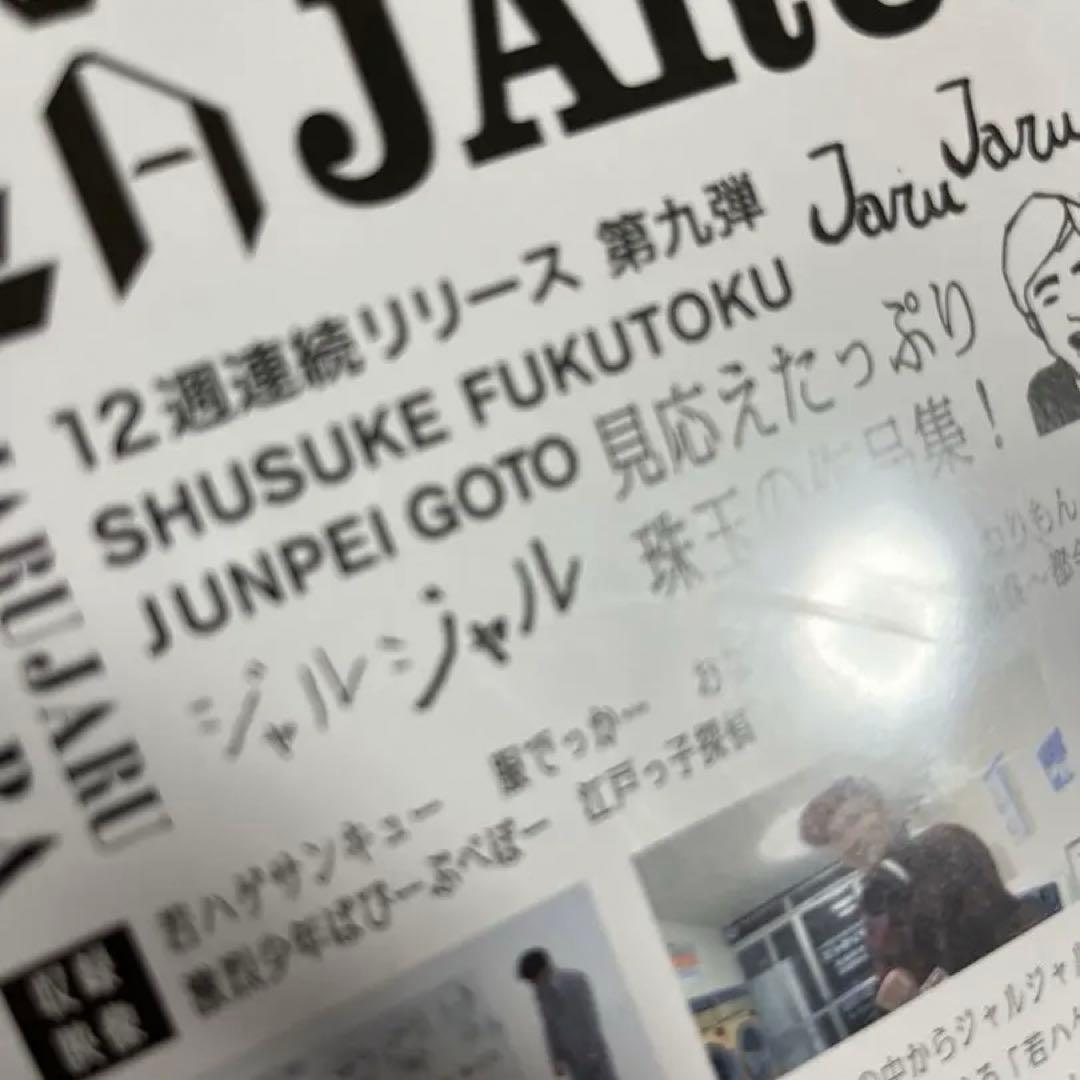 JARU
Jaru Jaru
12週連続リリース 第九弾
SHUSUKE FUKUTOKU
JUNPEI GOTO 見応えたっぷり
ジャルジャル 珠玉の作品集！
JARUJARU
若ハゲサンキュー 服でっかー
少年ばびーぶべぼー 江戸っ子探偵
収録
映像
の中からジャルジャル
「若ハゲ